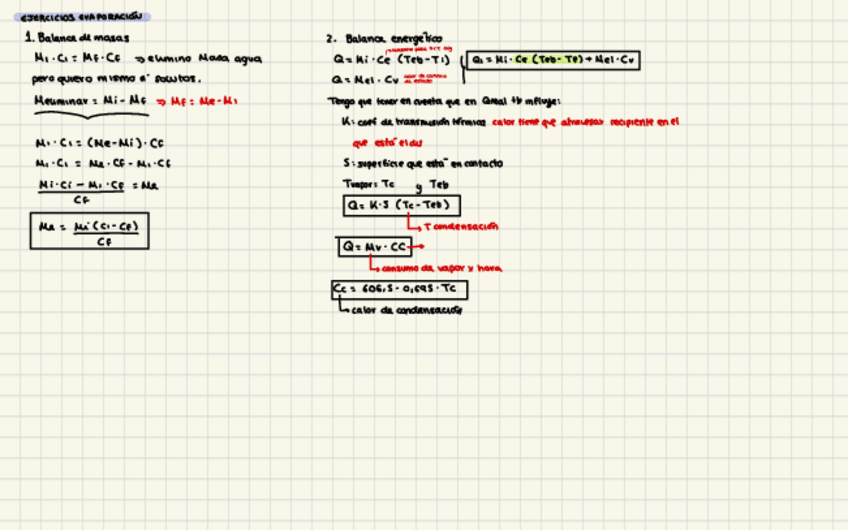 EJERCICIOS EVAPORACIÓN
1. Balance de masas
Mi · Ci = Mf · Cf ⇒ elimino Masa agua
pero quiero mismo nº solutos.
Meliminar = Mi - Mf ⇒ Mf = Me - Mi
Mi · Ci = (Me - Mi) · Cf
Mi · Ci = Me · Cf - Mi · Cf
Mi · Ci - Mi · Cf / Cf = Me
Me = Mi (Ci - Cf) / Cf
2. Balance energético
Q = Mi · Ce (Teb - Ti)
Q = Mel · Cv
Q = Mi · Ce (Teb - Tf) + Mel · Cv
Tengo que tener en cuenta que en Qreal tb influye:
K: coef de transmisión térmica calor tiene que atravesar recipiente en el
que está el dis
S: superficie que está en contacto
Tvapor: Tc y Teb
Q = K · S (Tc - Teb)
T condensación
Q = Mv · CC
consumo de vapor x hora
Cc = 606,5 - 0,695 · Tc
calor de condensación